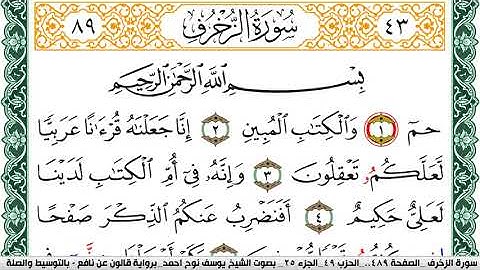 ٨٩ سُورَةُ الزُّخْرُفِ ٤٣
بِسْمِ اللَّهِ الرَّحْمَٰنِ الرَّحِيمِ
حمٓ ١ وَالْكِتَابِ الْمُبِينِ ٢ إِنَّا جَعَلْنَاهُ قُرْءَانًا عَرَبِيًّا
لَّعَلَّكُمُۥ تَعْقِلُونَ ٣ وَإِنَّهُۥ فِىٓ أُمِّ الْكِتَابِ لَدَيْنَا
لَعَلِىٌّ حَكِيمٌ ٤ أَفَنَضْرِبُ عَنكُمُ الذِّكْرَ صَفْحًا
سورة الزخرف_الصفحة ٤٨٩_الحزب ٤٩_الجزء ٢٥_بصوت الشيخ يوسف نوح احمد_برواية قالون عن نافع - بالتوسيط والصلة